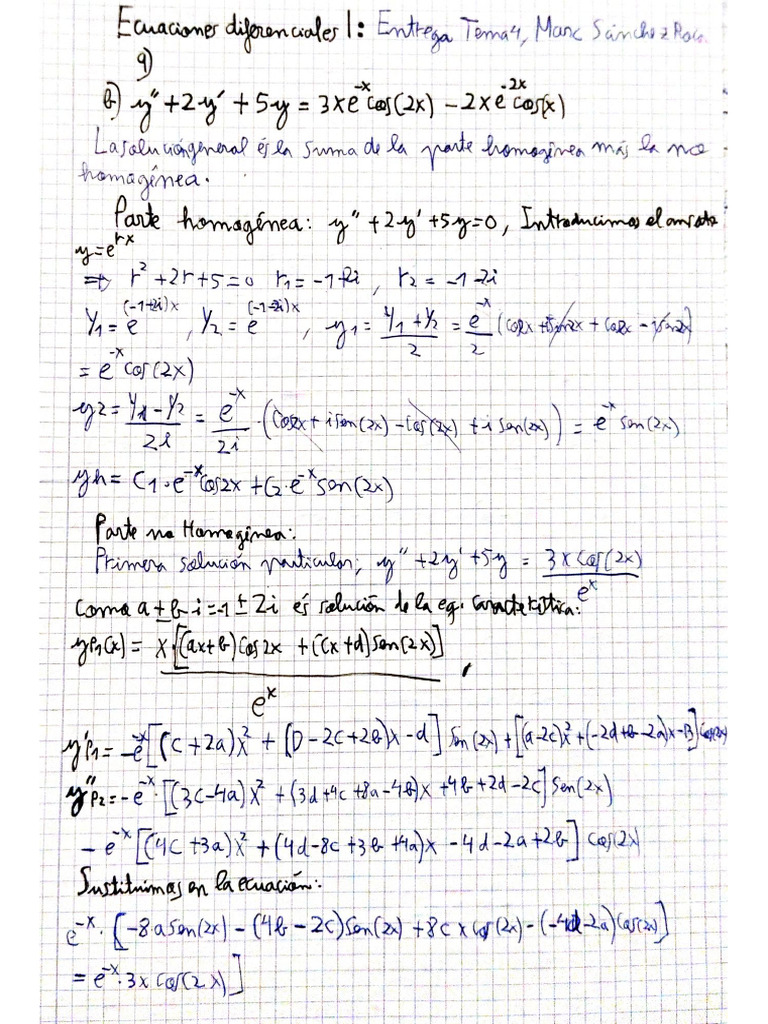 Ecuaciones diferenciales 1: Entrega Tema 4, Marc Sánchez
9)
b) y'' + 2y' + 5y = 3xe^{-x} cos(2x) - 2xe^{-2x} cos(x)
La solución general és la suma de la parte homogénea más la no
homogénea.
Parte homogénea: y'' + 2y' + 5y = 0, Introducimos el ansatz
y = e^{rx}
⇒ r² + 2r + 5 = 0 r₁ = -1+2i, r₂ = -1-2i
Y₁ = e^{(-1+2i)x}, Y₂ = e^{(-1-2i)x}, y₁ = (Y₁+Y₂)/2 = e^{-x}/2 (cos2x + isen2x + cos2x - isen2x)
= e^{-x} cos(2x)
y2 = (Y₁-Y₂)/2i = e^{-x}/2i · (cos2x + isen(2x) - cos(2x) + isen(2x)) = e^{-x} sen(2x)
yh = C₁·e^{-x} cos2x + C₂·e^{-x} sen(2x)
Parte no Homogénea:
Primera solución particular; y'' + 2y' + 5y = 3x cos(2x)/e^x
Como a ± bi = -1 ± 2i és solución de la eq. Característica:
yp₁(x) = x·[(ax+b)cos2x + (cx+d)sen(2x)]/e^x,
y'p₁ = -e^{-x}[(c+2a)x² + (D-2c+2b)x - d] sen(2x) + [(a-2c)x² + (-2d+b-2a)x - B] cos(2x)
y''p₂ = -e^{-x}·[(3c-4a)x² + (3d+4c+8a-4b)x + 4b+2d-2c] sen(2x)
- e^{-x}[(4c+3a)x² + (4d-8c+3b+4a)x - 4d-2a+2b] cos(2x)
Sustituimos en la ecuación:
e^{-x}·[-8a sen(2x) - (4b-2c)sen(2x) + 8c x cos(2x) - (-4d-2a)cos(2x)]
= e^{-x}·3x cos(2x)]